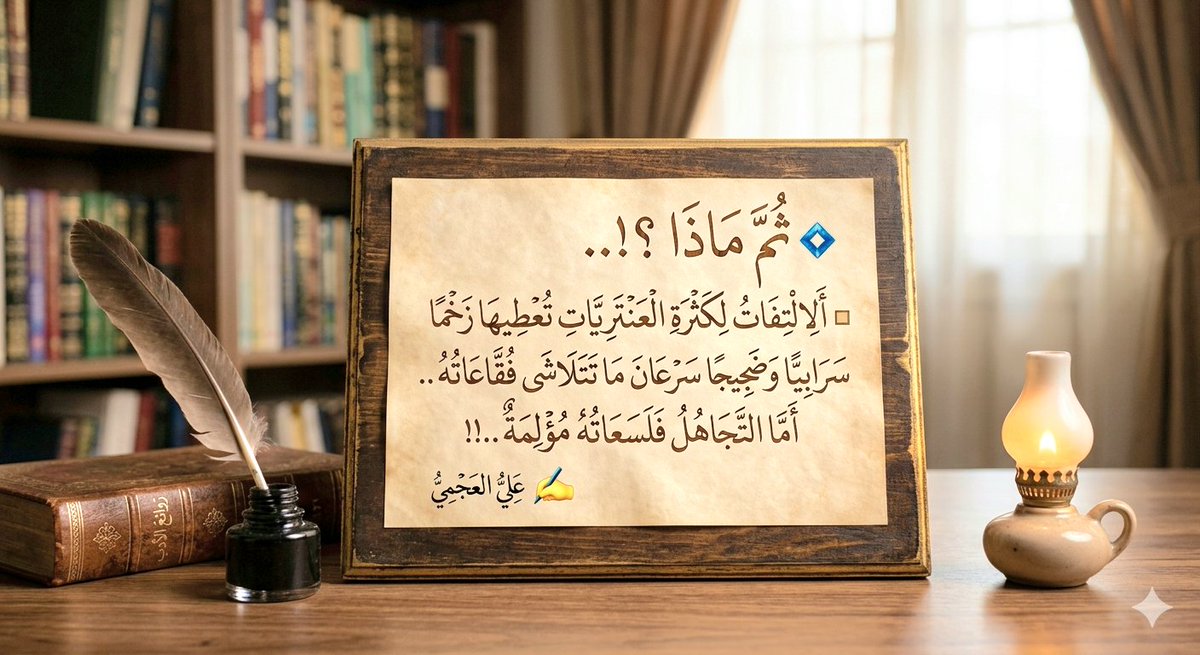 ثُمَّ مَاذَا ؟!..
أَلِالْتِفَاتُ لِكَثْرَةِ الْعَنْتَرِيَّاتِ تُعْطِيهَا زَخْمًا
سَرَابِيًّا وَضَجِيجًا سَرْعَانَ مَا تَتَلَاشَى فُقَّاعَاتُهُ..
أَمَّا التَّجَاهُلُ فَلَسَعَاتُهُ مُؤْلِمَةٌ..!!
✍️ عَلِيُّ العَجْمِيُّ
روائع الأدب